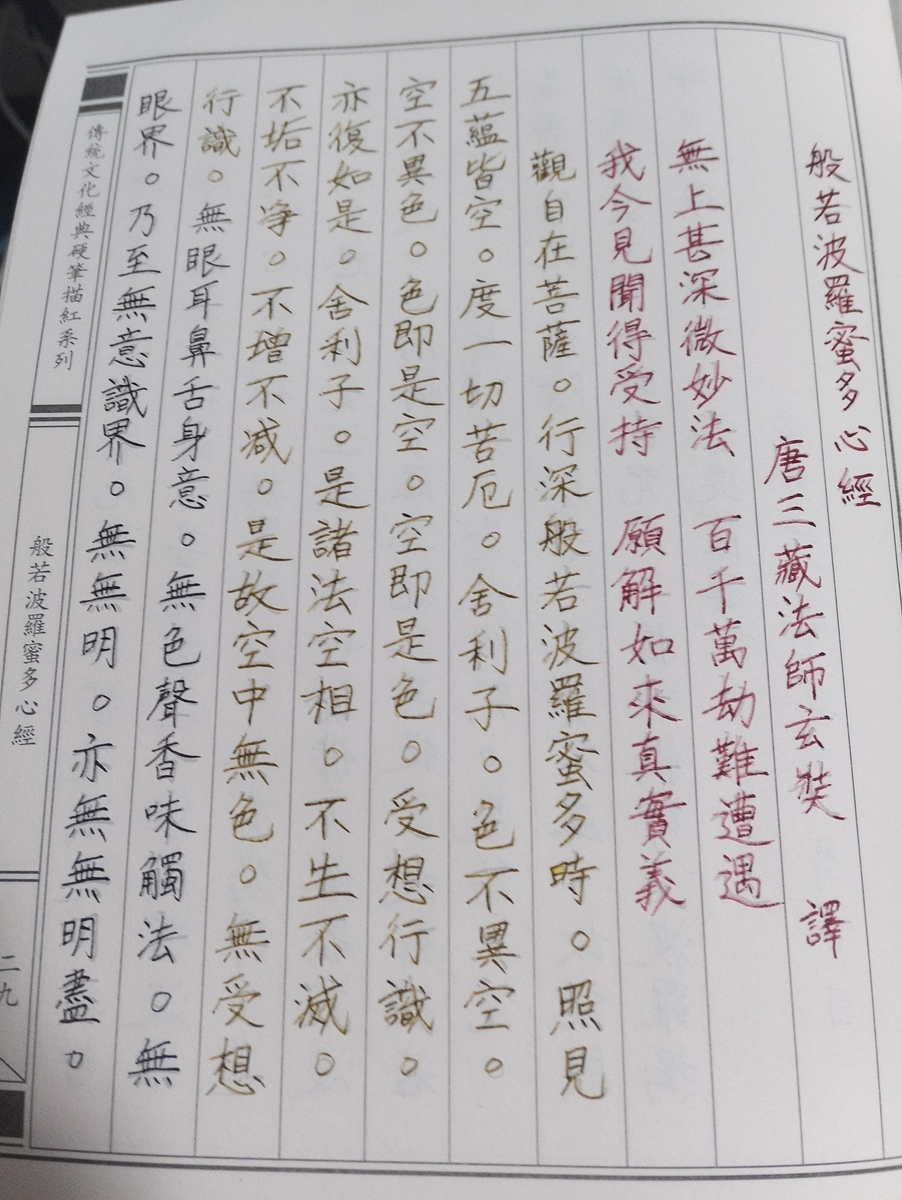 般若波羅蜜多心經
唐三藏法師玄奘 譯
無上甚深微妙法 百千萬劫難遭遇
我今見聞得受持 願解如來真實義
觀自在菩薩。行深般若波羅蜜多時。照見
五蘊皆空。度一切苦厄。舍利子。色不異空。
空不異色。色即是空。空即是色。受想行識。
亦復如是。舍利子。是諸法空相。不生不滅。
不垢不净。不增不减。是故空中無色。無受想
行識。無眼耳鼻舌身意。無色聲香味觸法。無
眼界。乃至無意識界。無無明。亦無無明盡。
傳統文化經典硬筆描紅系列
般若波羅蜜多心經
二九